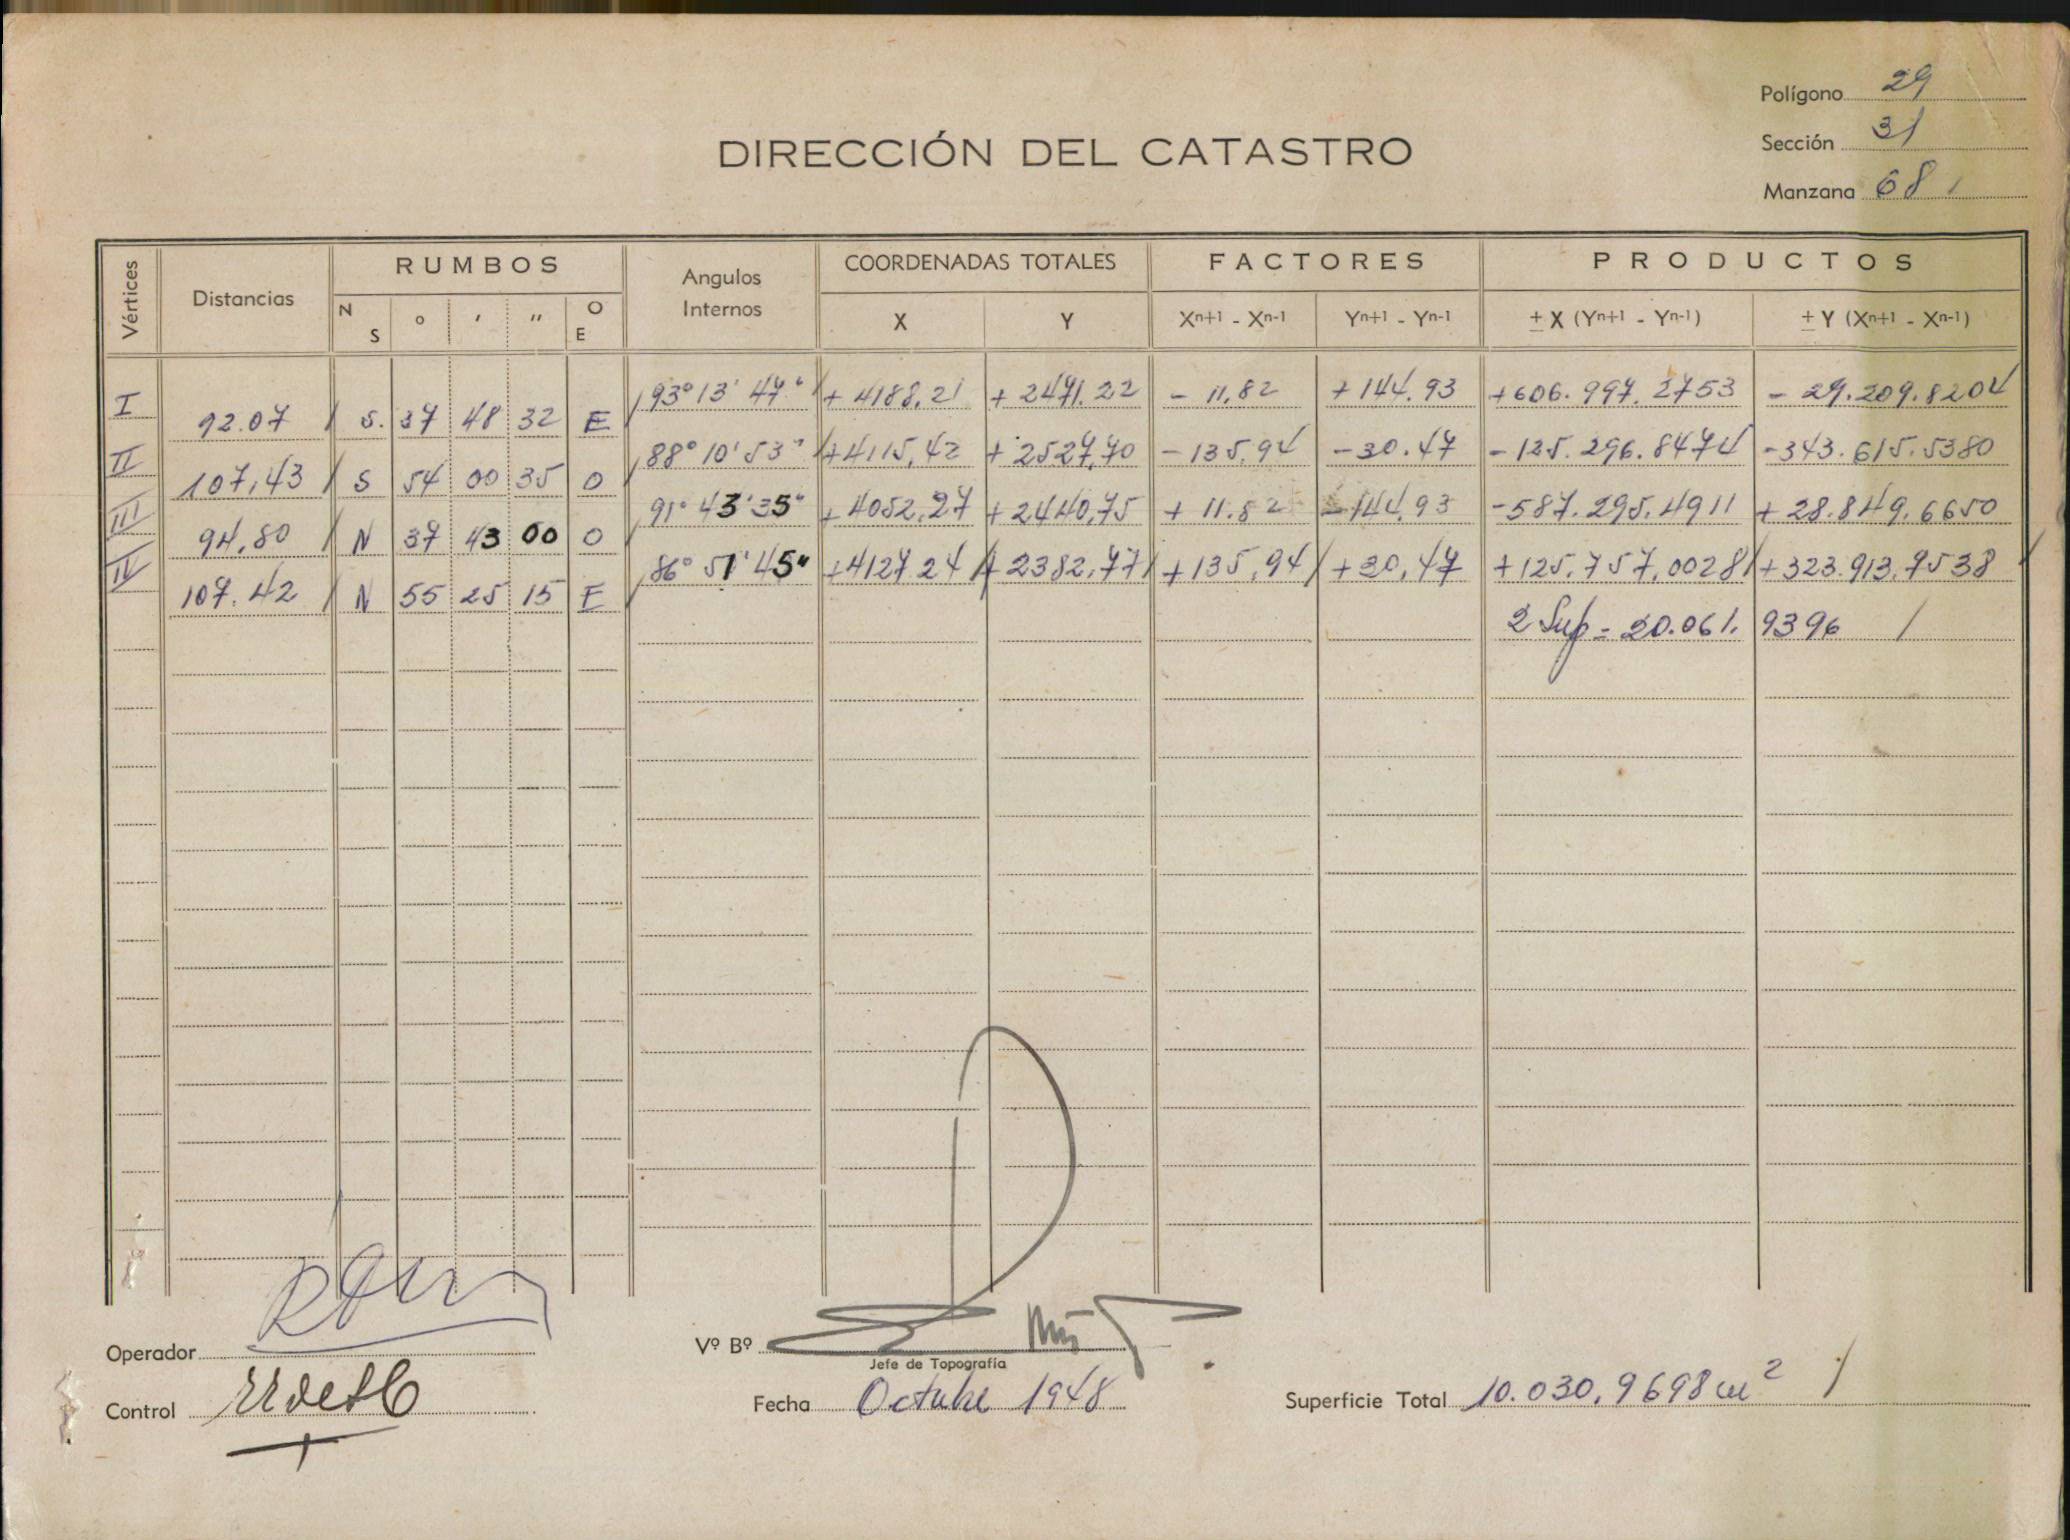 Polígono 29
Sección 31
Manzana 68
DIRECCIÓN DEL CATASTRO
Vértices Distancias RUMBOS Angulos Internos COORDENADAS TOTALES FACTORES PRODUCTOS
N S ° ' " O E X Y Xn+1 - Xn-1 Yn+1 - Yn-1 ± X (Yn+1 - Yn-1) ± Y (Xn+1 - Xn-1)
I 93° 13' 47" + 4188,21 + 2471.22 - 11,82 + 144.93 +606.997.2753 - 29.209.8204
92.07 S. 37 48 32 E
II 88° 10' 53" +4115,42 + 2527,70 - 135,94 - 30.47 - 125.396.8474 -343.615.5380
107,43 S 54 00 35 O
III 91° 43' 35" + 4052,27 + 2440,75 + 11.82 - 144,93 -587.295.4911 + 28.849.6650
94,80 N 37 43 00 O
IV 86° 51' 45" +4127.24 + 2382,77 +135,94 +30,47 +125.757,0028 +323.913,7538
107.42 N 55 25 15 E
2 Sup = 20.061. 9396
Operador
Vº Bº
Jefe de Topografía
Control
Fecha Octubre 1948
Superficie Total 10.030,9698 m²